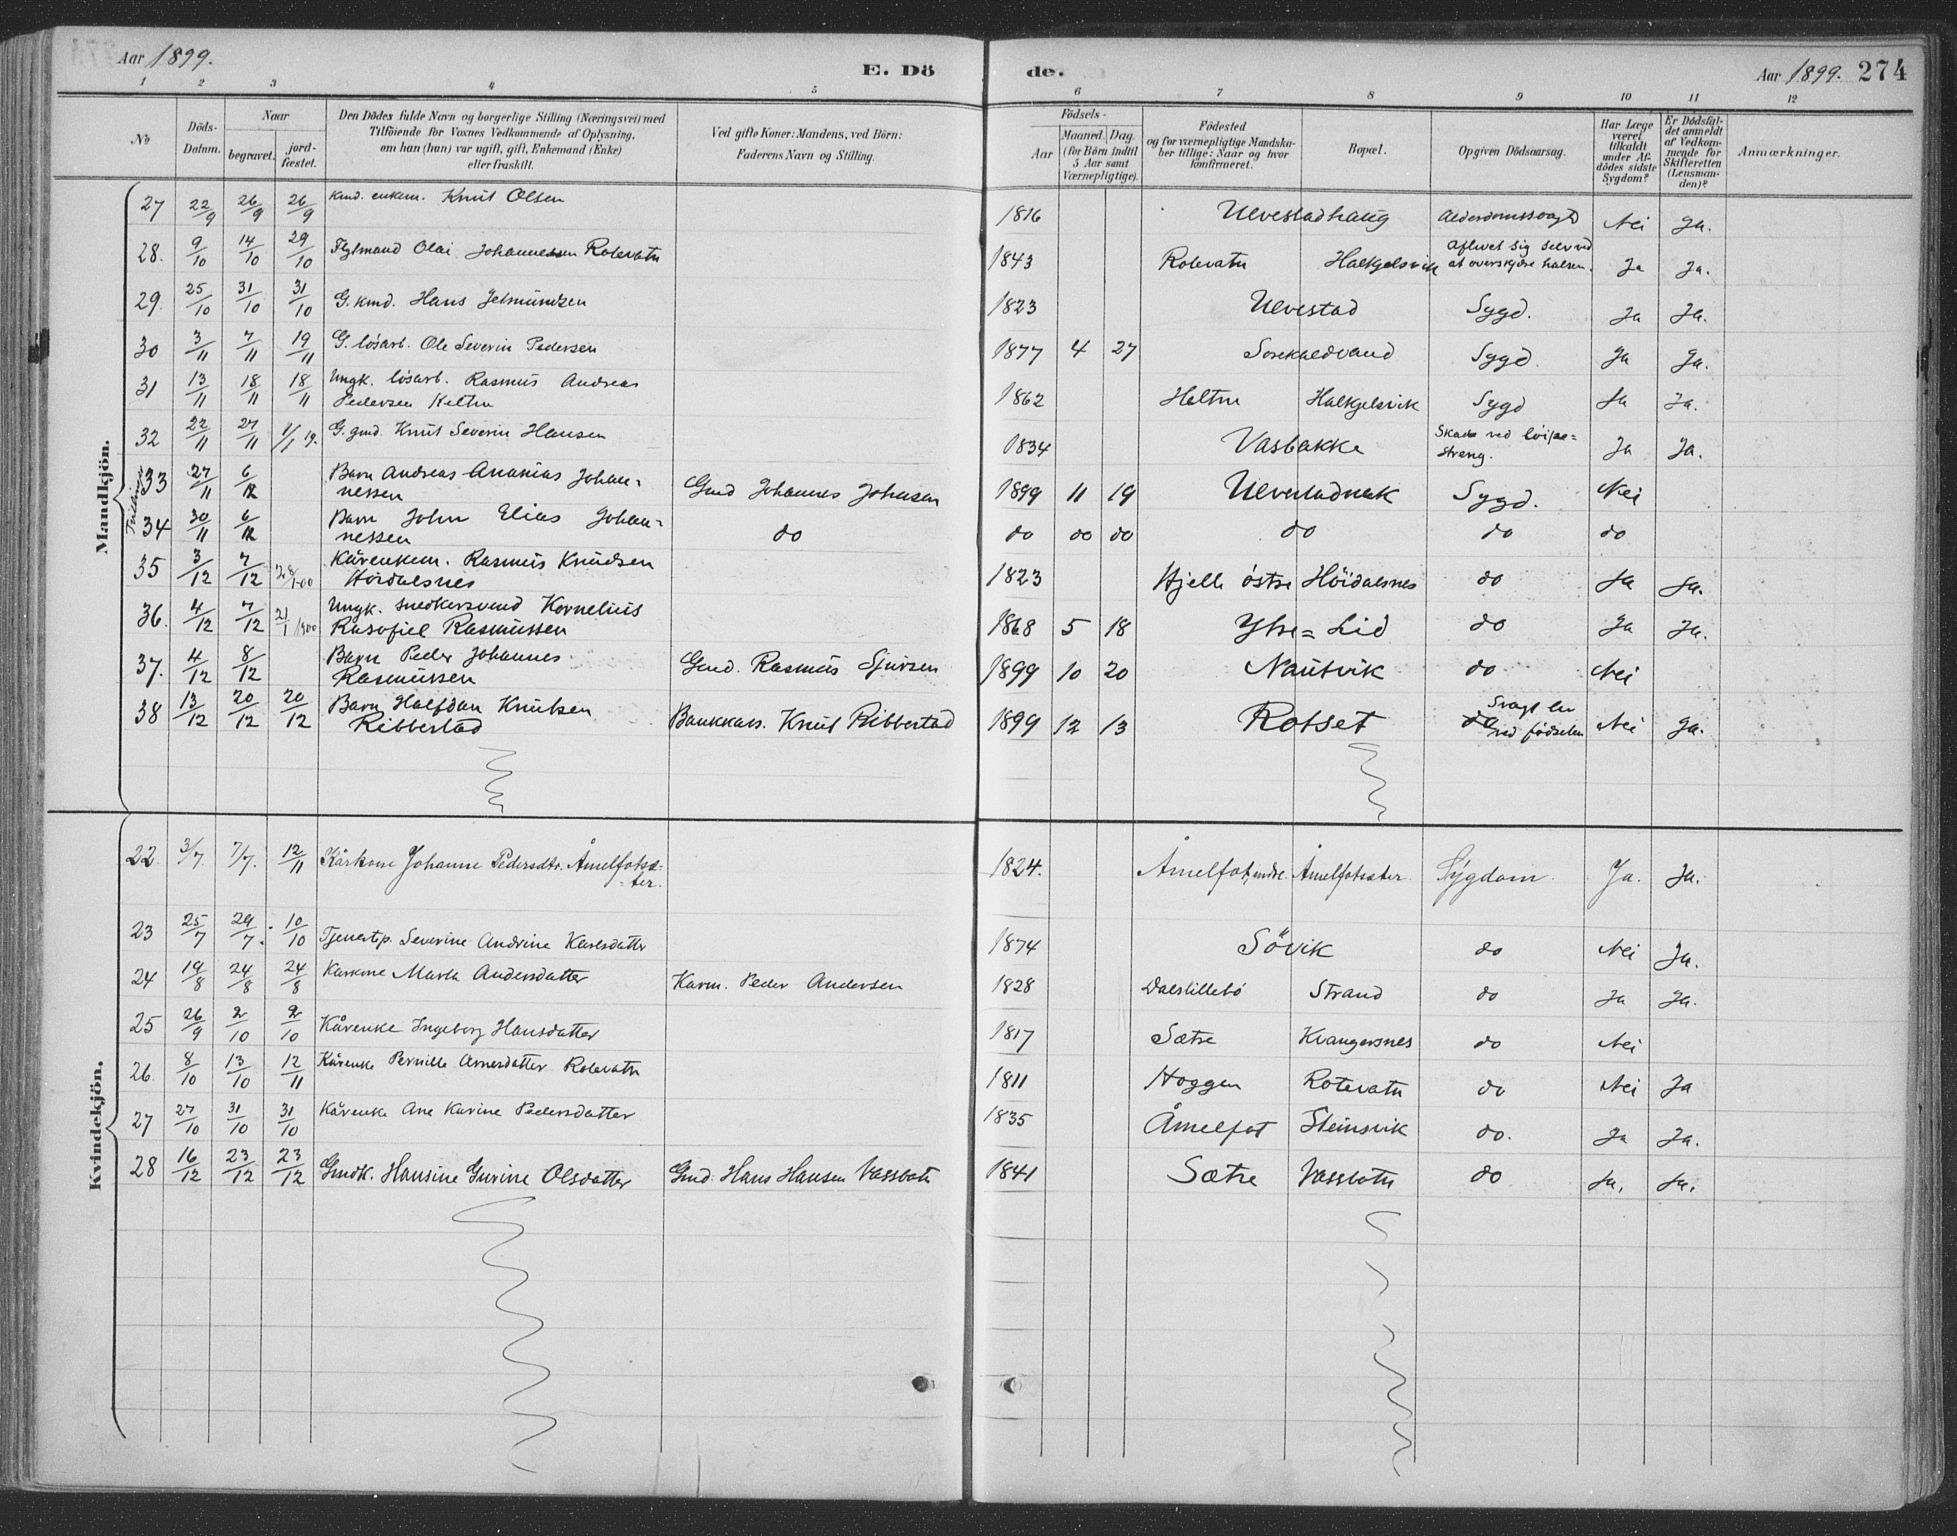 Aar 1899.
E. Dö
de.
Aar 1899. 274
1 2 3 4 5 6 7 8 9 10 11 12
No
Döds-
Datum.
Naar
begravet.
jord-
fæstet.
Den Dödes fulde Navn og borgerlige Stilling (Næringsvei) med
Tilföiende for Voxnes Vedkommende af Oplysning,
om han (hun) var ugift, gift, Enkemand (Enke)
eller fraskilt.
Ved gifte Koner: Mandens, ved Börn:
Faderens Navn og Stilling.
Födsels-
Aar
Maaned. Dag.
(for Börn indtil
5 Aar samt
Værnepligtige).
Födested
og for værnepligtige Mandska-
ber tillige: Naar og hvor
konfirmeret.
Bopæl.
Opgiven Dödsaarsag.
Har Læge
været
tilkaldt
under Af-
dödes sidste
Sygdom?
Er Dödsfal-
det anmeldt
af Vedkom-
mende for
Skifteretten
(Lensman-
den)?
Anmærkninger.
Mandkjön.
27 22/9 26/9 26/9 Kmd. enkem. Knut Olsen 1816 Ulvestadhaug Alderdomssvagh Nei Ja.
28. 9/10 14/10 29/10 Johannessen Rotevatn 1843 Rotevatn Halkjelsvik Aflivet sig selv ved
at overskjære halsen. Ja Ja.
29. 25/10 31/10 31/10 G. kmd. Hans Jetmundsen 1823 Ulvestad Sygd. Ja Ja.
30 3/11 7/11 19/11 G. lösarb. Ole Severin Pedersen 1877 4 27 Sygd. Ja Ja.
31 13/11 18/11 18/11 Ungk. lösarb. Rasmus Andreas
Pedersen Heltne 1862 Heltne Halkjelsvik Sygd Ja Ja.
32 22/11 27/11 G. gmd. Knut Severin Hansen 1834 Vasbakke Skade ved löipe=
streng. Ja Ja.
33 27/11 6/12 Barn Andreas Ananias Johan-
nessen Gmd Johannes Johnsen 1899 11 19 Sygd. Nei
34 30/11 6/12 Barn John Elias Johan-
nessen do do do do do do do
35 3/12 7/12 Kårenkem. Rasmus Knudsen
Höidalsnes 1823 Hjelle östre Höidalsnes do Ja Ja.
36. 4/12 7/12 21/1 1900 Ungk. snedkersvend Kornelius
Rasmussen 1868 5 18 Ytre=Lid do Ja Ja.
37. 4/12 8/12 Barn Peder Johannes
Rasmussen Gmd. Rasmus Sjursen 1899 10 20 Nautvik do Nei
38 13/12 20/12 20/12 Barn Halfdan Knutsen
Ribbestad Bankkas. Knut Ribbestad 1899 12 13 Rotset do Svagt liv
ved födselen Nei Ja.
Kvindekjön.
22. 3/7 7/7. 12/11 Kårkone Johanne Pedersdtr. Åmelfotsæ-
-ter. 1824. Åmelfot, indre Åmelfotsæter Sygdom Ja. Ja.
23 25/7 29/7. 10/10 Tjenestp. Severine Andrine Karlsdatter 1874 Sövik do Nei Ja.
24 19/8 24/8 24/8 Karkone Marta Andersdatter Karm. Peder Andersen 1828 Dalslillebö Strand do Ja Ja.
25 26/9 2/10 2/10 Kårenke Ingeborg Hansdatter 1817 Sætre Kvangersnes do Nei
26. 8/10 13/10 12/11 Kårenke Pernille Arnesdatter Rotevatn 1811 Hoggen Rotevatn do Nei Ja
27 27/10 31/10 31/10 Kårenke Ane Karine Pedersdatter 1835 Åmelfot Steinsvik do. Ja Ja.
28 16/12 23/12 23/12 Gmdk. Hansine Gurine Olsdatter Gmd. Hans Hansen Vassbotn 1841 Sætre Vassbotn do Ja. Ja.